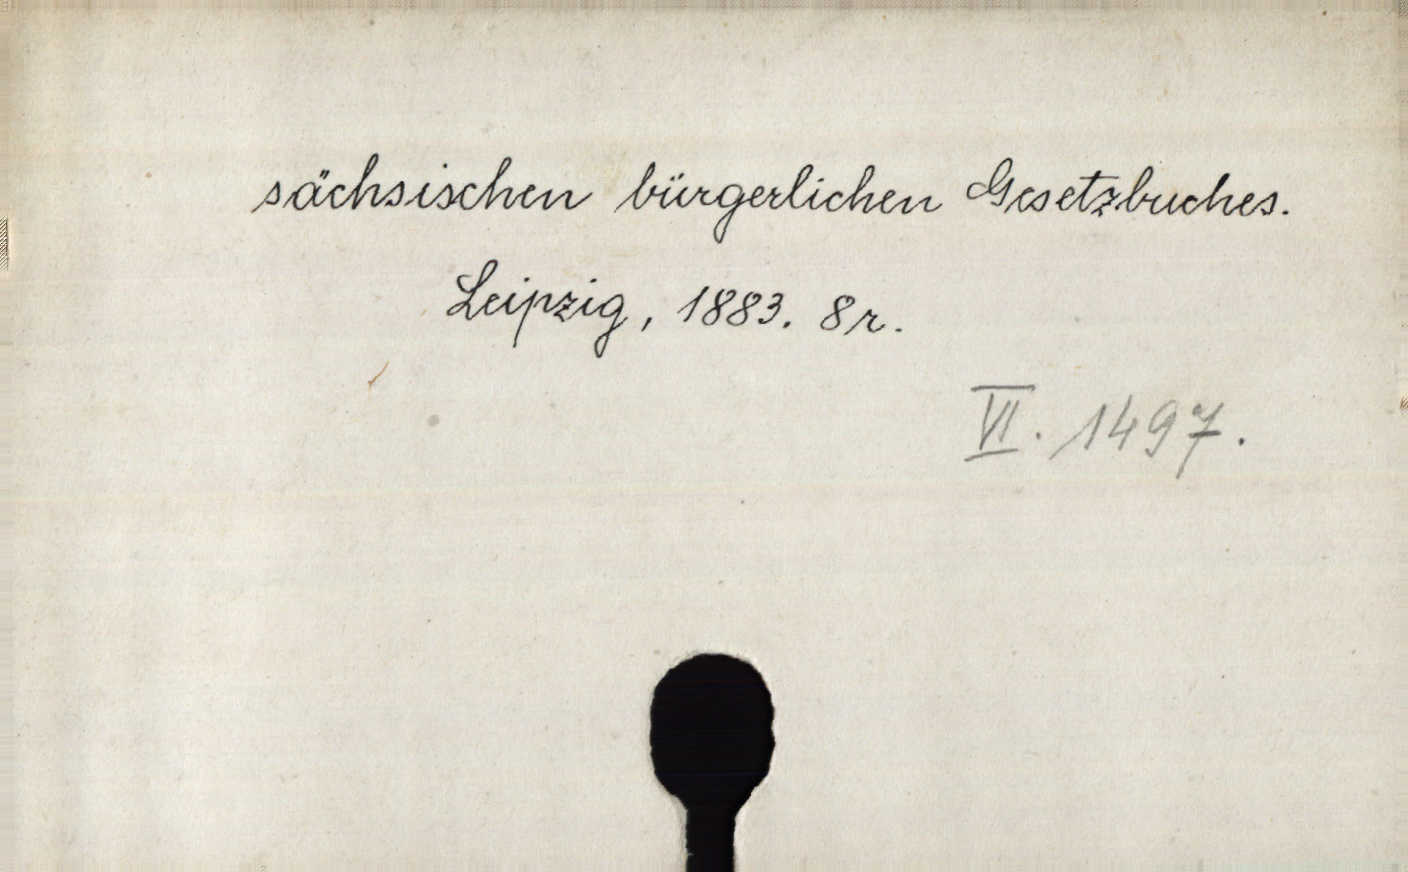 sächsischen bürgerlichen Gesetzbuches.
Leipzig, 1883. 8r.
VI. 1497.